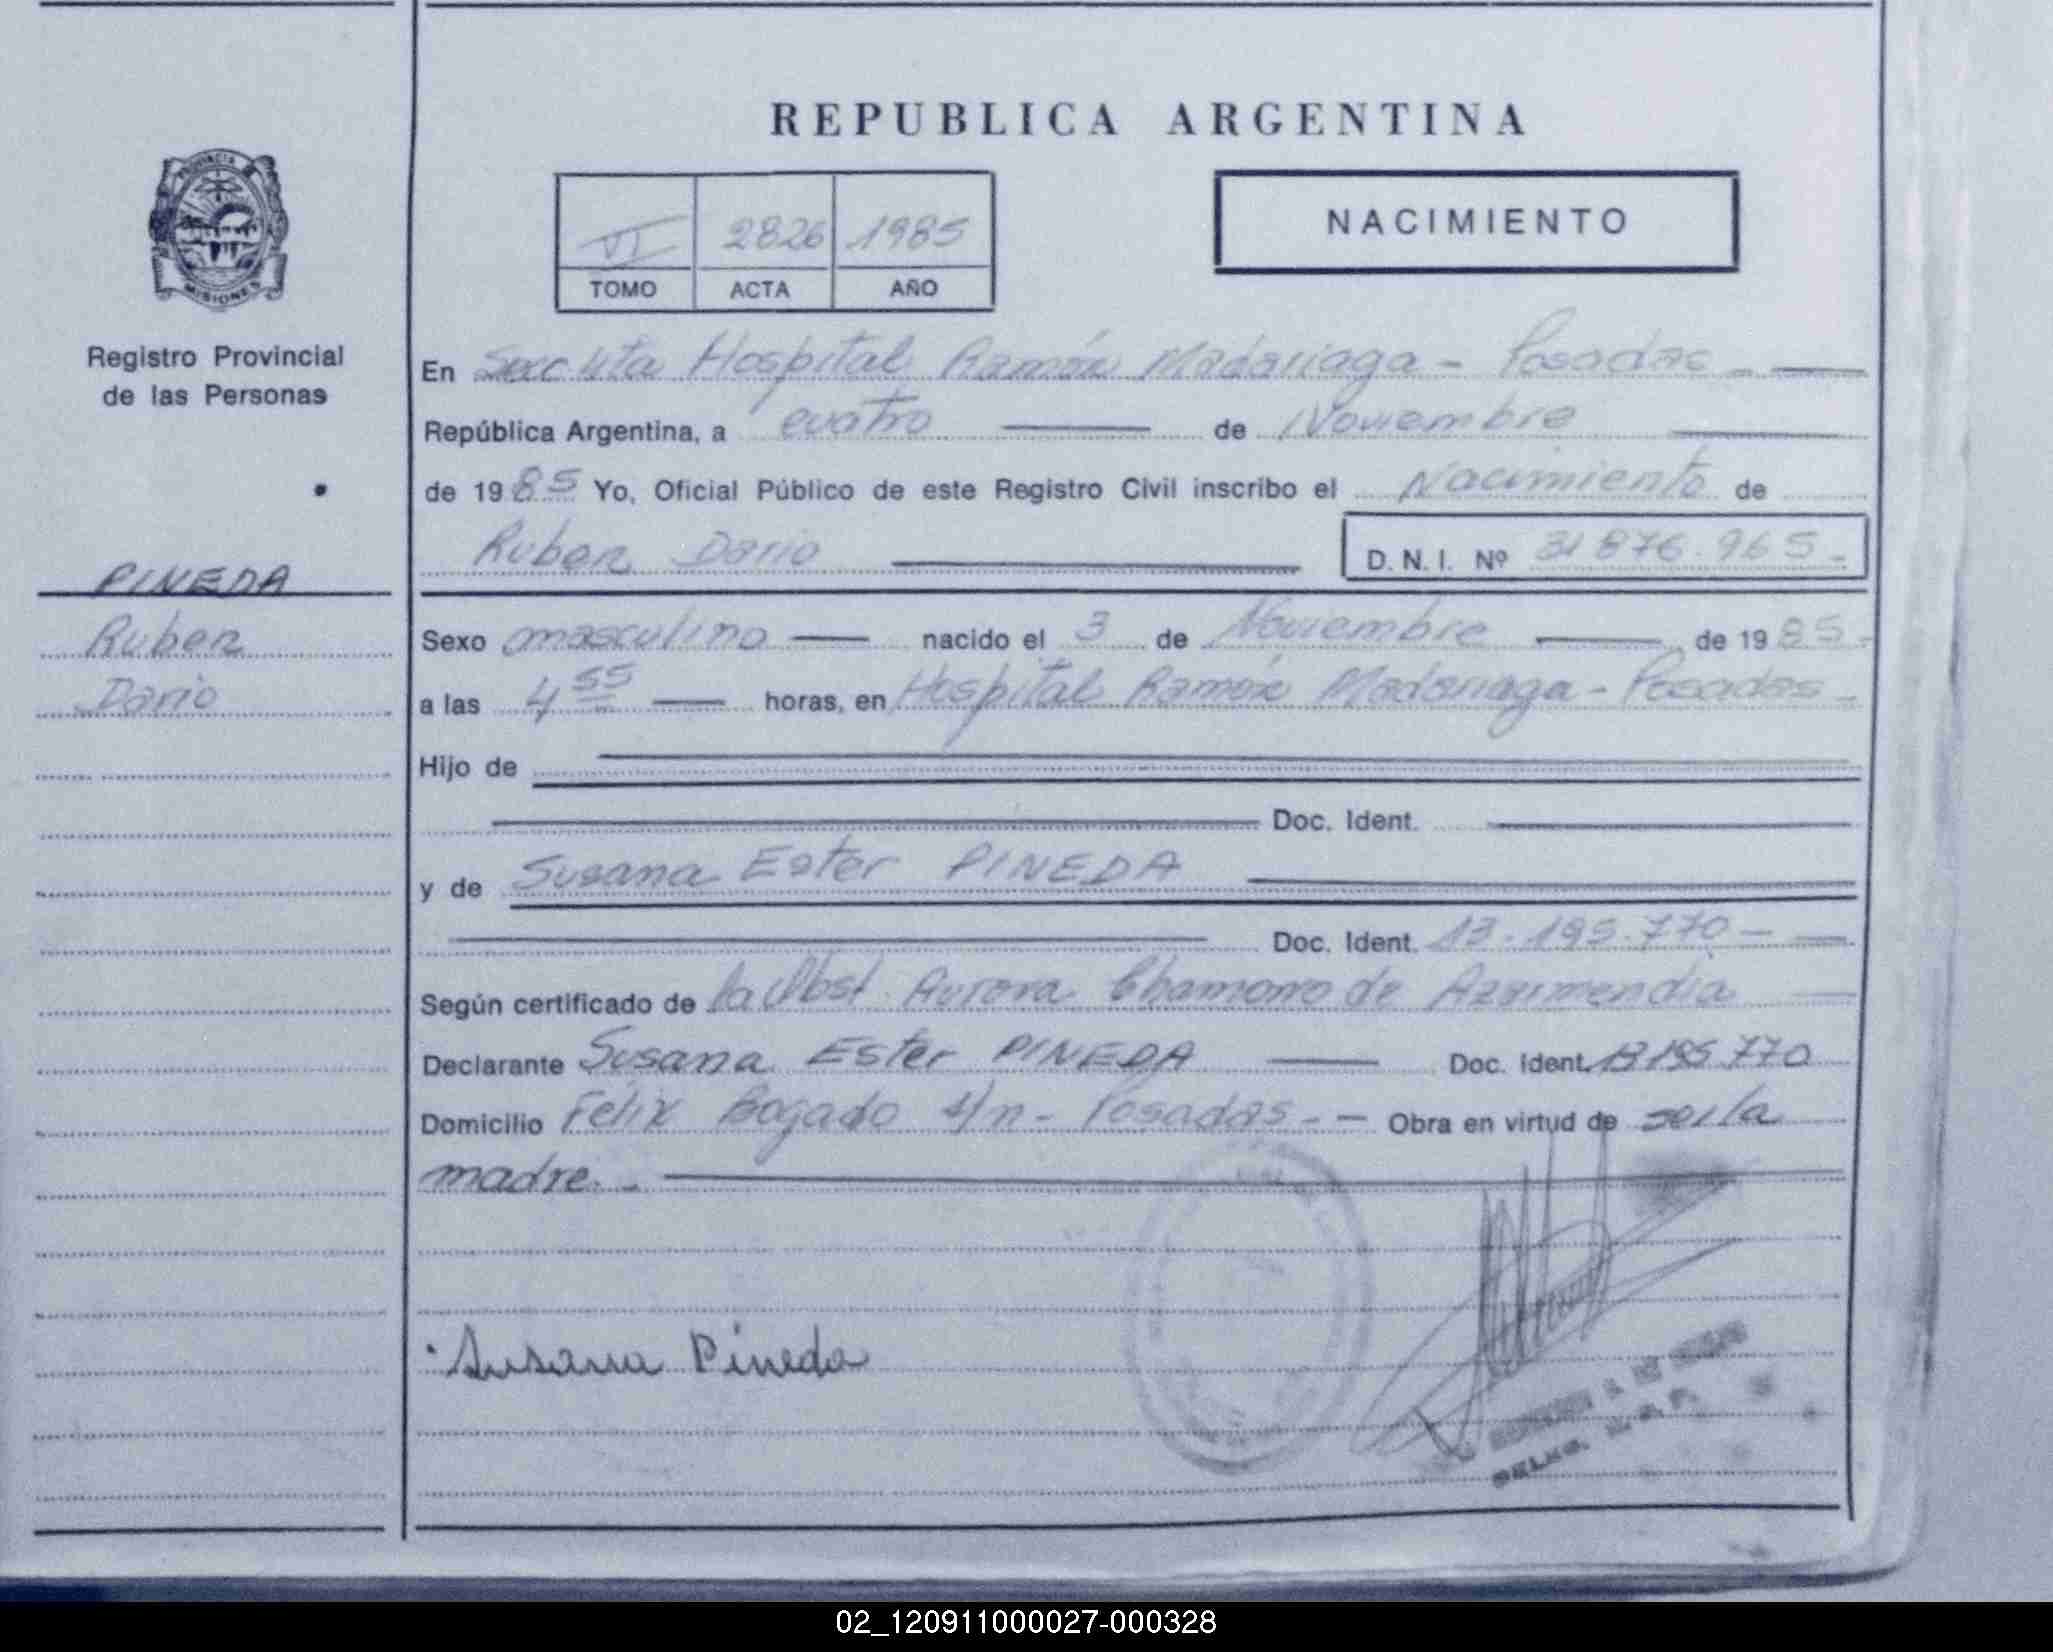 REPUBLICA ARGENTINA
PROVINCIA DE
MISIONES
Registro Provincial
de las Personas
VI 2826 1985
TOMO ACTA AÑO
NACIMIENTO
En Secc 4ta Hospital Ramón Madariaga - Posadas -
República Argentina, a cuatro de Noviembre
de 1985 Yo, Oficial Público de este Registro Civil inscribo el Nacimiento de
Ruben Dario D. N. I. Nº 31 876.965-
PINEDA
Ruben
Dario
Sexo masculino nacido el 3 de Noviembre de 1985-
a las 4 55 horas, en Hospital Ramón Madariaga - Posadas -
Hijo de
Doc. Ident.
y de Susana Ester PINEDA
Doc. Ident. 13.195.770-
Según certificado de la Obst. Aurora Chamorro de
Declarante Susana Ester PINEDA Doc. Ident. 13195.770
Domicilio Felix Bogado s/n - Posadas - Obra en virtud de ser la
madre. -
Susana Pineda
02_120911000027-000328